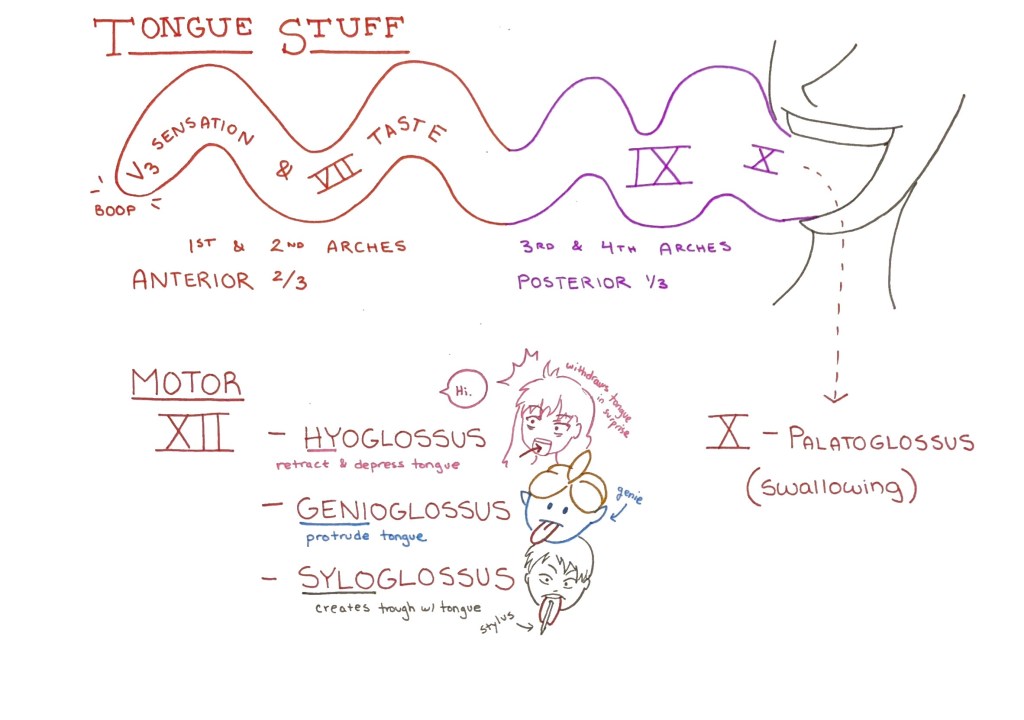 TONGUE STUFF
V3 SENSATION & VII TASTE
IX
X
BOOP
1ST & 2ND ARCHES
ANTERIOR 2/3
3RD & 4TH ARCHES
POSTERIOR 1/3
MOTOR
XII
Hi.
withdraws tongue
in
surprise
- HYOGLOSSUS
retract & depress tongue
- GENIOGLOSSUS
protrude tongue
genie
- SYLOGLOSSUS
creates trough w/ tongue
stylus
X - PALATOGLOSSUS
(swallowing)